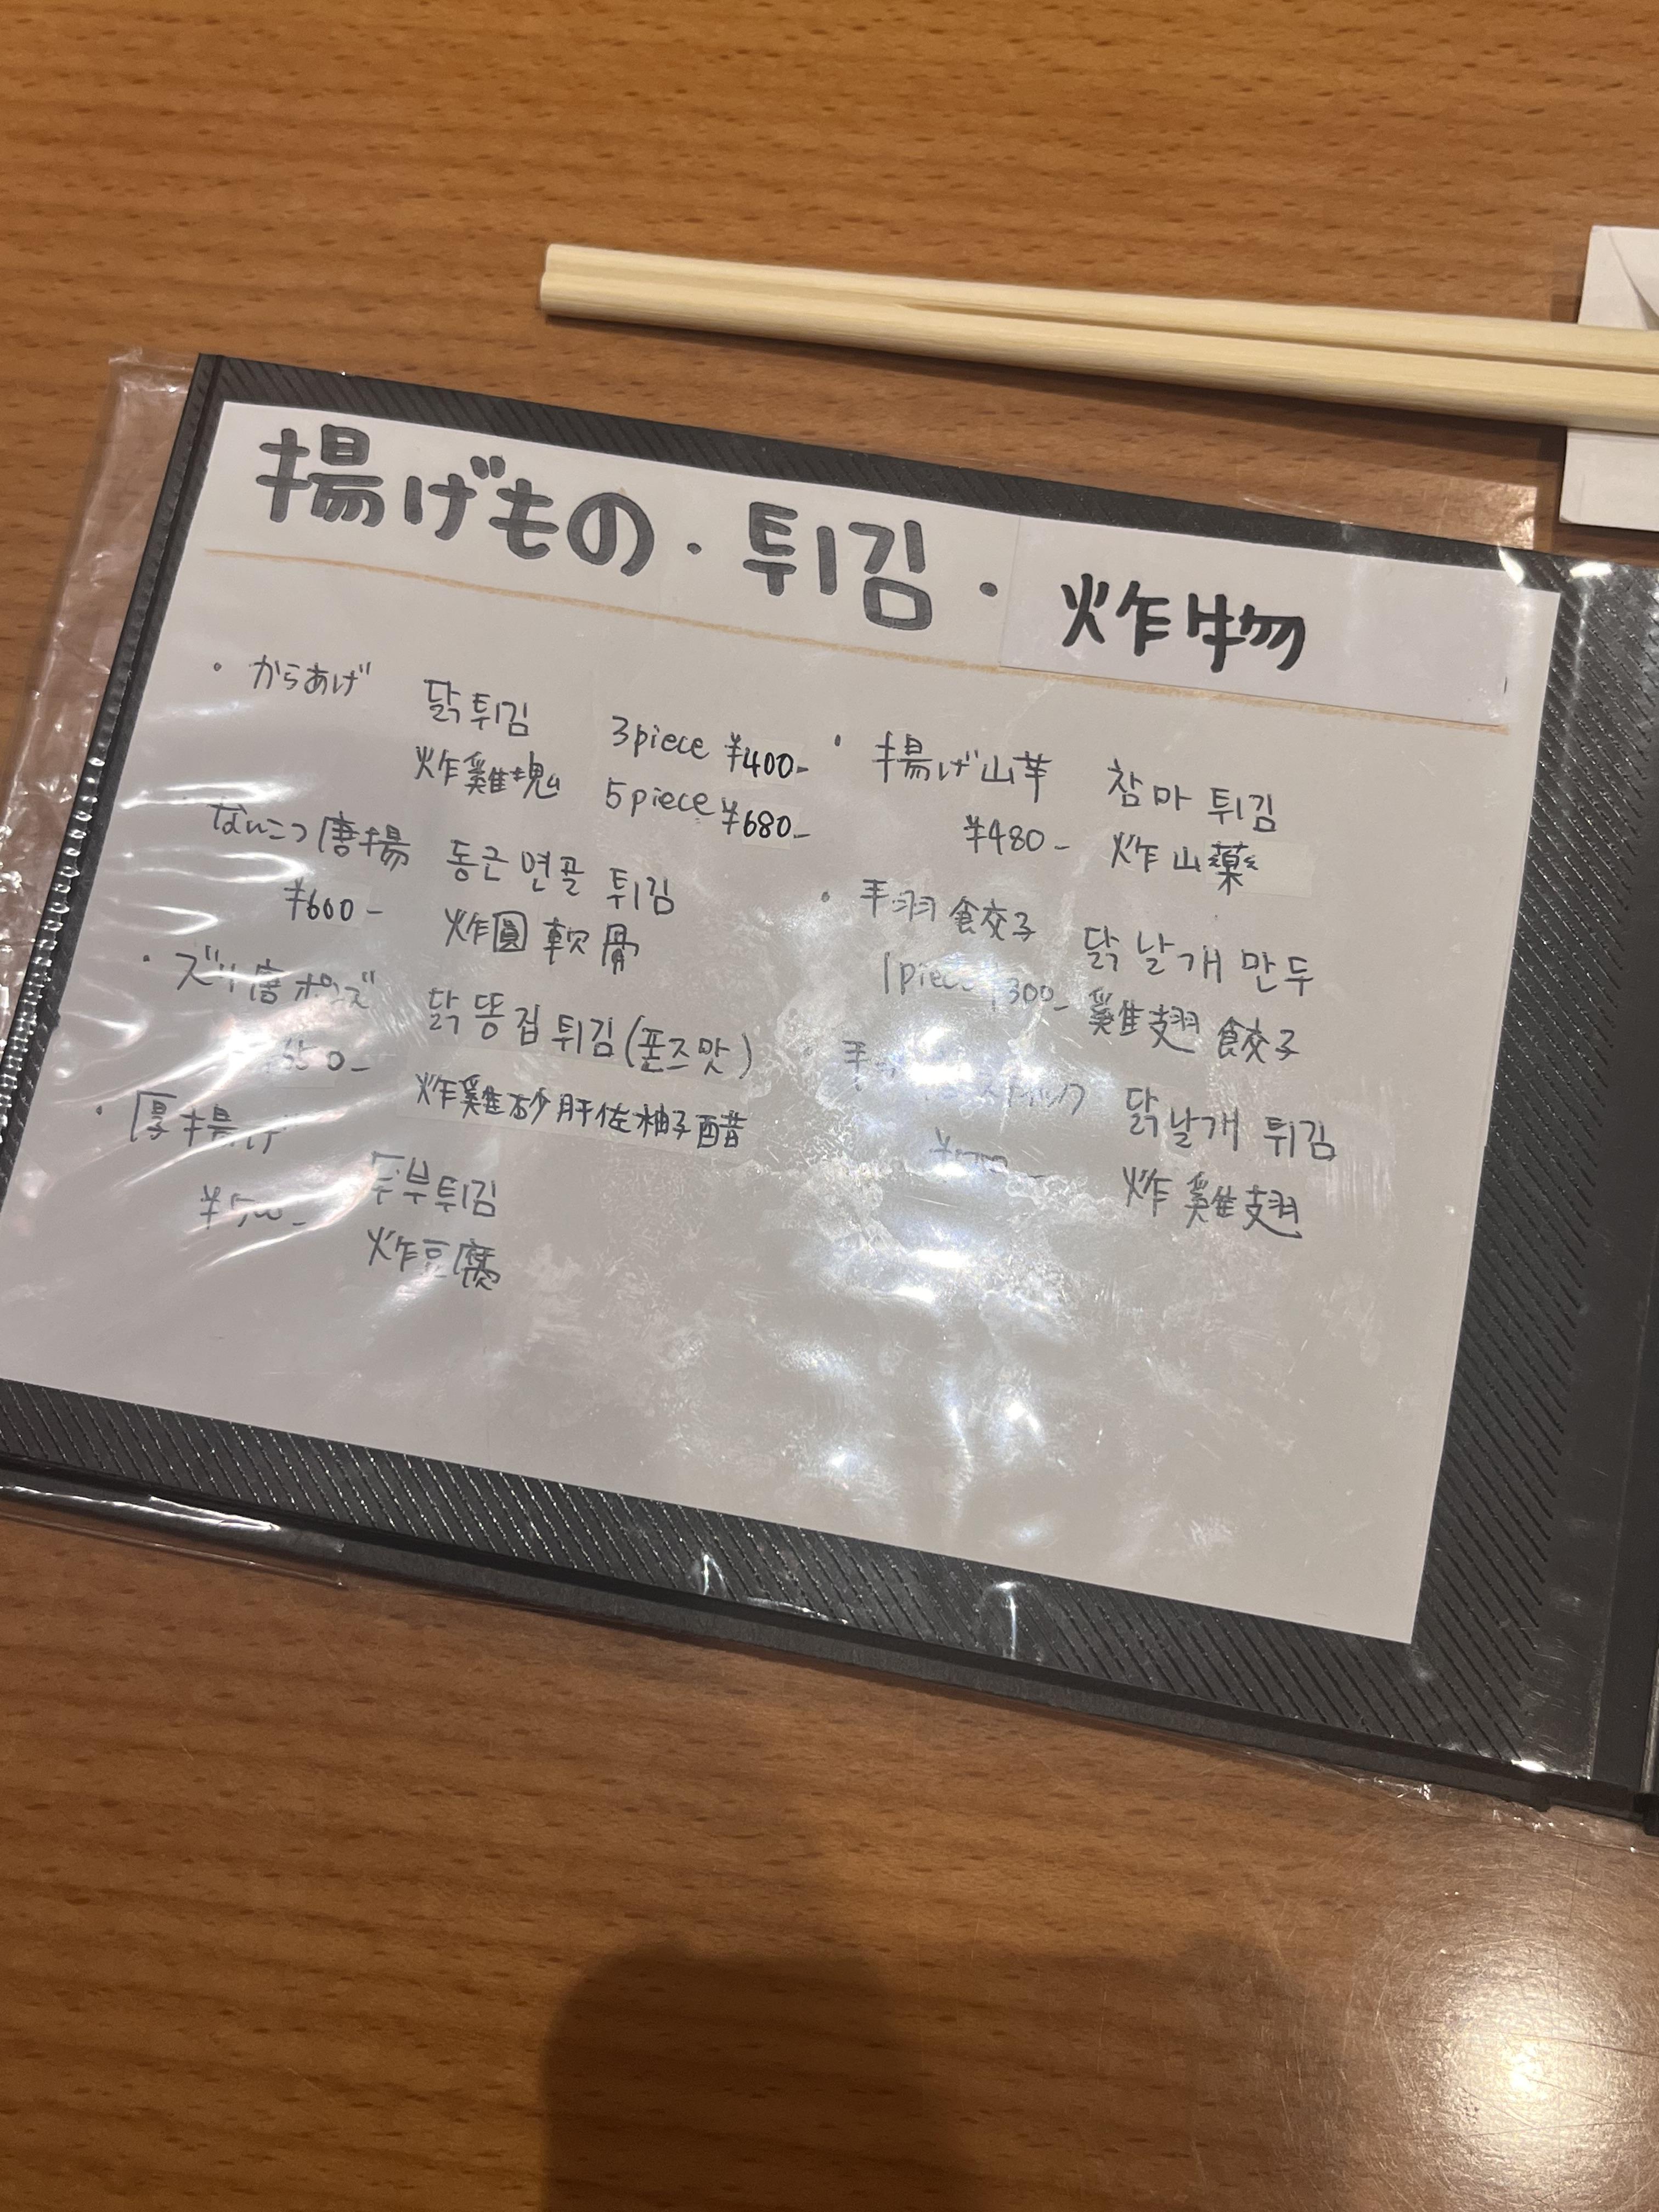 揚げもの・튀김・炸物
・からあげ 닭튀김 3piece ¥400-
炸雞塊 5piece ¥680-
なんこつ唐揚 둥근 연골 튀김
¥600- 炸圓軟骨
・ズリ唐ポンズ 닭똥집 튀김(폰즈맛)
650- 炸雞砂肝佐柚子醋
・厚揚げ 두부튀김
炸豆腐
・揚げ山芋 참마 튀김
¥480- 炸山藥
・手羽餃子 닭 날개 만두
1piece 300- 雞翅餃子
닭날개 튀김
炸雞翅